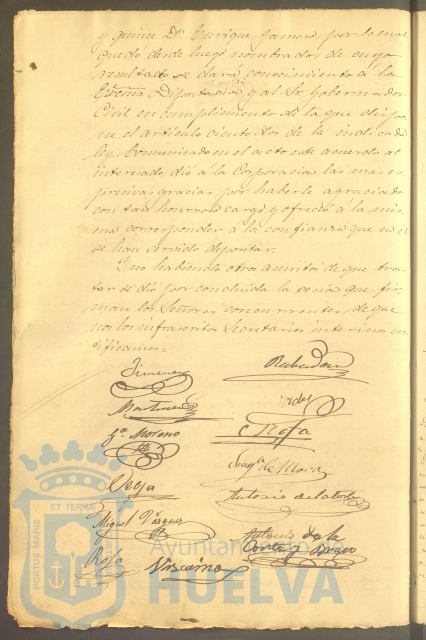 y quince Dn. Enrique Gamero, por lo cual
quedó desde luego nombrado, de cuyo
resultado se dará conocimiento á la
Excma Diputacion y al Sr. Gobernador
Civil en cumplimiento de lo que dispo
ne el artículo ciento dos de la indicada
ley. Comunicado en el acto este acuerdo al
interesado, dió á la Corporacion las mas ex
presivas gracias por haberle agraciado
con tan honroso cargo y ofreció á la mis
ma corresponder á la confianza que en él
se han servido depositar.
Y no habiendo otros asuntos de que tra
tar se dió por concluida la sesion que fir
man los Señores concurrentes, de que
nos los infrascritos Secretarios interinos cer
tificamos=
Jimenez
Martinez
Ga. Moreno
Rofa
Vega
Joaqn. de Mora
Antonio de la Corte
Miguel Vazquez
Antonio de la
Corte y Bravo
Rofa
Vizcaino
ET TERRAE
PORTUS MARIS
Ayuntamiento
HUELVA